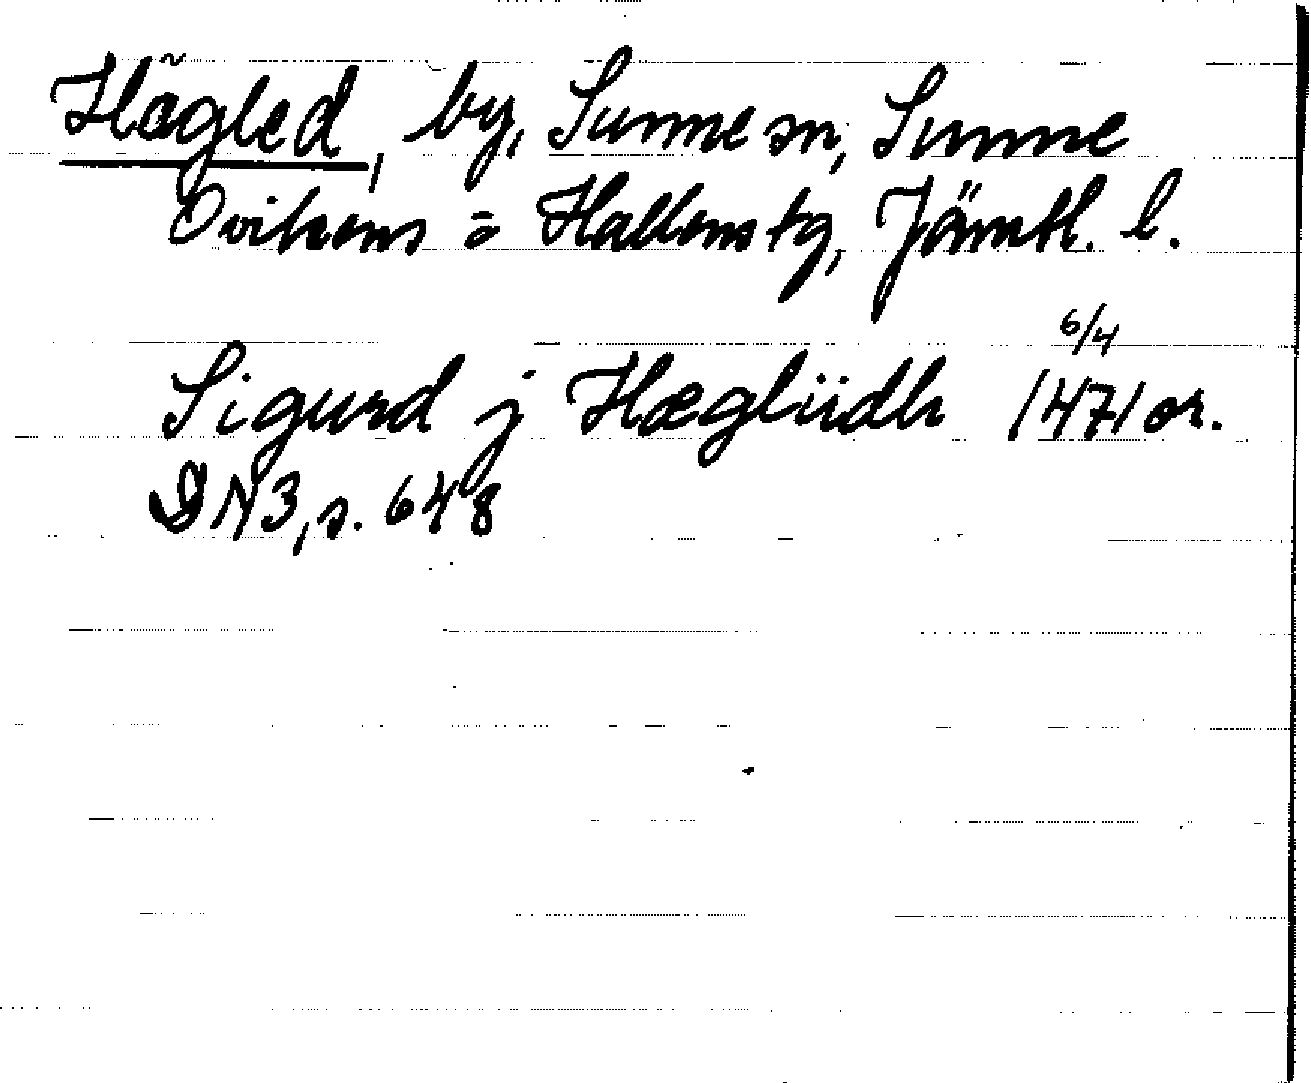 Hägled, by, Sunne sn, Sunne
Ovikens o Hallens tg, Jämtl. l.
Sigurd j Hægliidh 6/4 1471 or.
DN3, s. 648